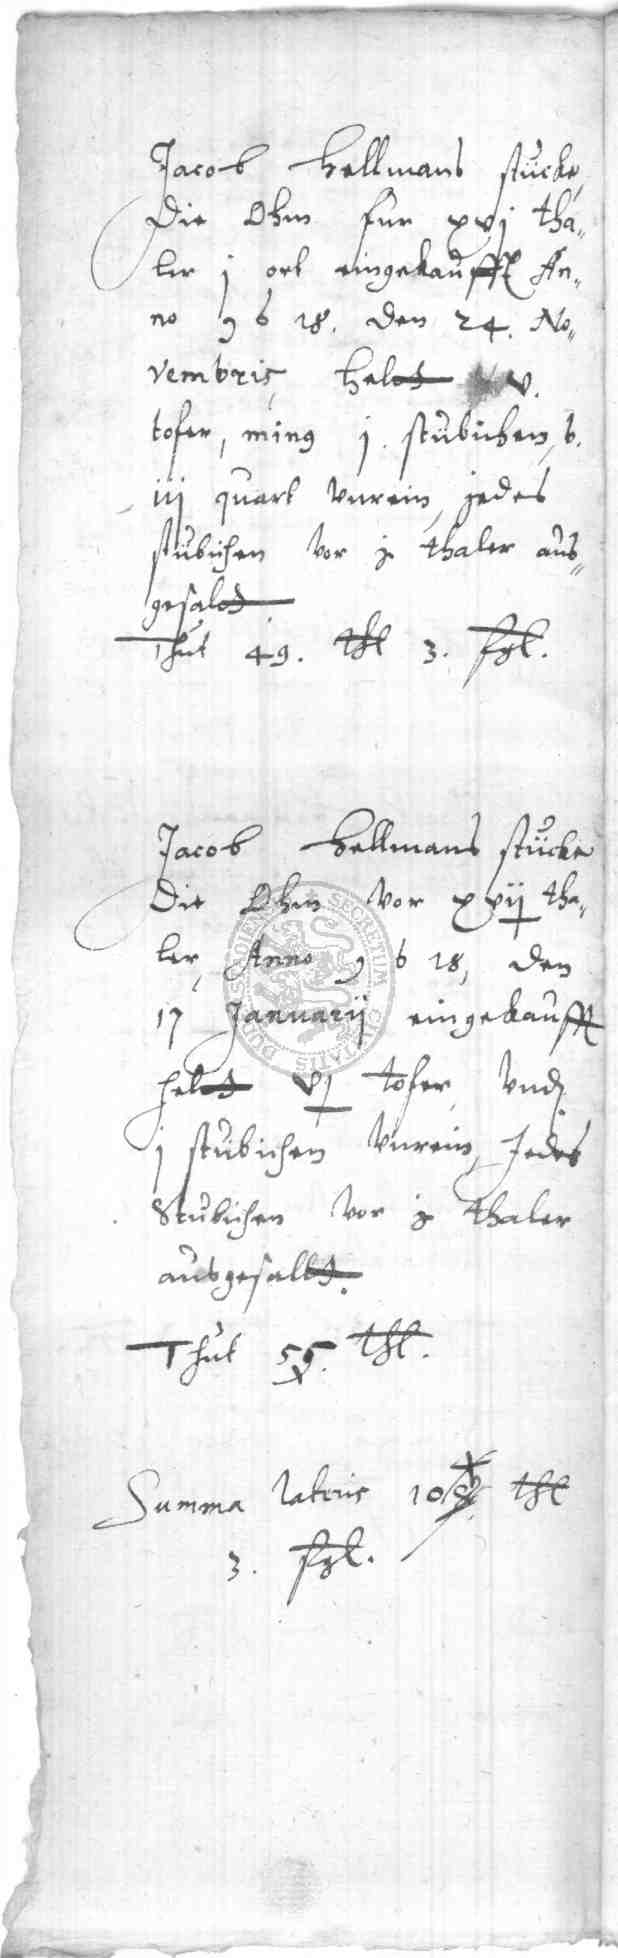 Jacob Hellmans stücke,
Die Ohm fur xvj tha„
ler j ort eingekaufft An„
no 9 6 18. den 24. No„
vembris, helt v.
tofer, min9 j. stübichen,
iij quart vnrein, jedes
stübichen vor thaler aus„
gesalt
Thut 49. thl 3. fgl.
Jacob Hellmans stücke
Die Ohm vor xvij tha„
ler, Anno 9 6 18, den
17 Januarij eingekaufft
helt vj tofer, vnd
j stübichen vnrein, Jedes
Stübichen vor thaler
ausgesallt.
Thut thl.
Summa lateris thl
3. fgl.
SECRETUM CIVITATIS